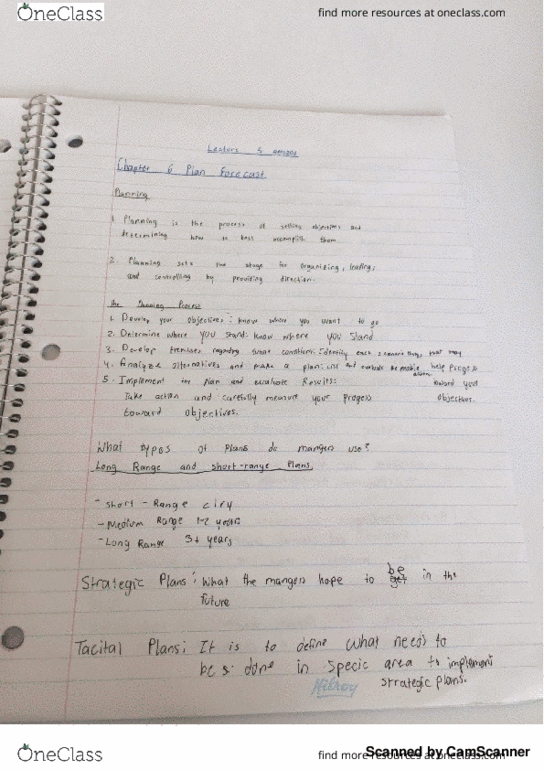 OneClass
find more resources at oneclass.com
Lecture 5
Chapter 6 Plan Forecast
Planning
1. Planning is the process of setting objectives and
determining how to best accomplish them.
2. Planning sets the stage for organizing, leading,
and controlling by providing direction.
The Planning Process
1. Develop your objectives: know where you want to go
2. Determine where you stand: know where you stand
3. Develop premises regarding future conditions: identify each scenario things that may
4. Analyze alternatives and make a plan: list and evaluate help Progress
5. Implement the plan and evaluate Results: toward your
Take action and carefully measure your progess objectives.
toward objectives.
What types of plans do mangers use?
Long Range and short-range Plans.
- short - Range
- Medium Range 1-2 years
- Long Range 3+ years
Strategic Plans: What the mangers hope to be in the
future
Tacital Plans: It is to define what needs to
be done in specic area to implement
strategic plans.
OneClass
find more resources at oneclass.com
Scanned by CamScanner